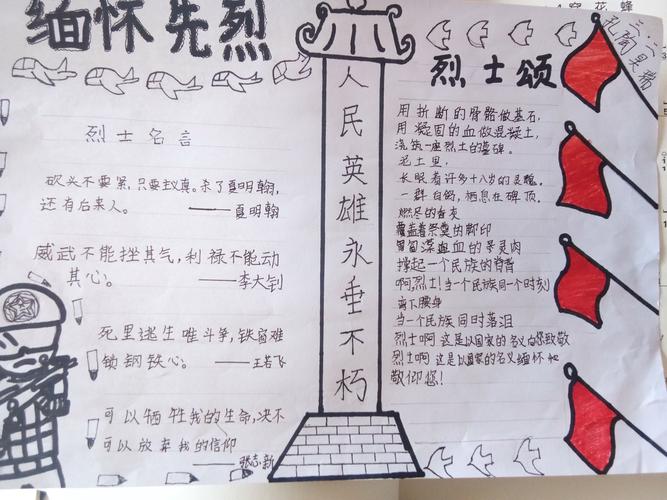 缅怀先烈
烈士名言
砍头不要紧,只要主义真。杀了夏明翰,
还有后来人。 ——夏明翰
威武不能挫其气,利禄不能动
其心。 ——李大钊
死里逃生唯斗争,铁窗难
锁钢铁心。 ——王若飞
可以牺牲我的生命,决不
可以放弃我的信仰
——张志新
人民英雄永垂不朽
三.二
烈士颂
用折断的骨骼做基石,
用凝固的血做混凝土,
浇筑一座烈士的墓碑。
泥土里,
长眠着许多十八岁的灵魂。
一群白鸽,栖息在碑顶。
燃尽的香灰
覆盖着祭奠的脚印
血的景灵肉
撑起一个民族的脊背
啊,烈士!当一个民族同一个时刻
弯下腰身
当一个民族同时落泪
烈士啊 这是以国家的名义向您致敬
烈士啊 这是以国家的名义缅怀
敬仰您!